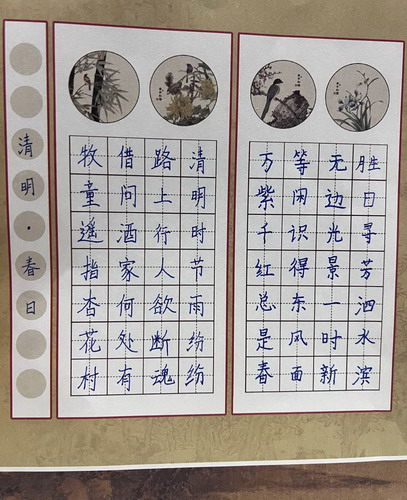 清明·春日
清明时节雨纷纷
路上行人欲断魂
借问酒家何处有
牧童遥指杏花村
胜日寻芳泗水滨
无边光景一时新
等闲识得东风面
万紫千红总是春